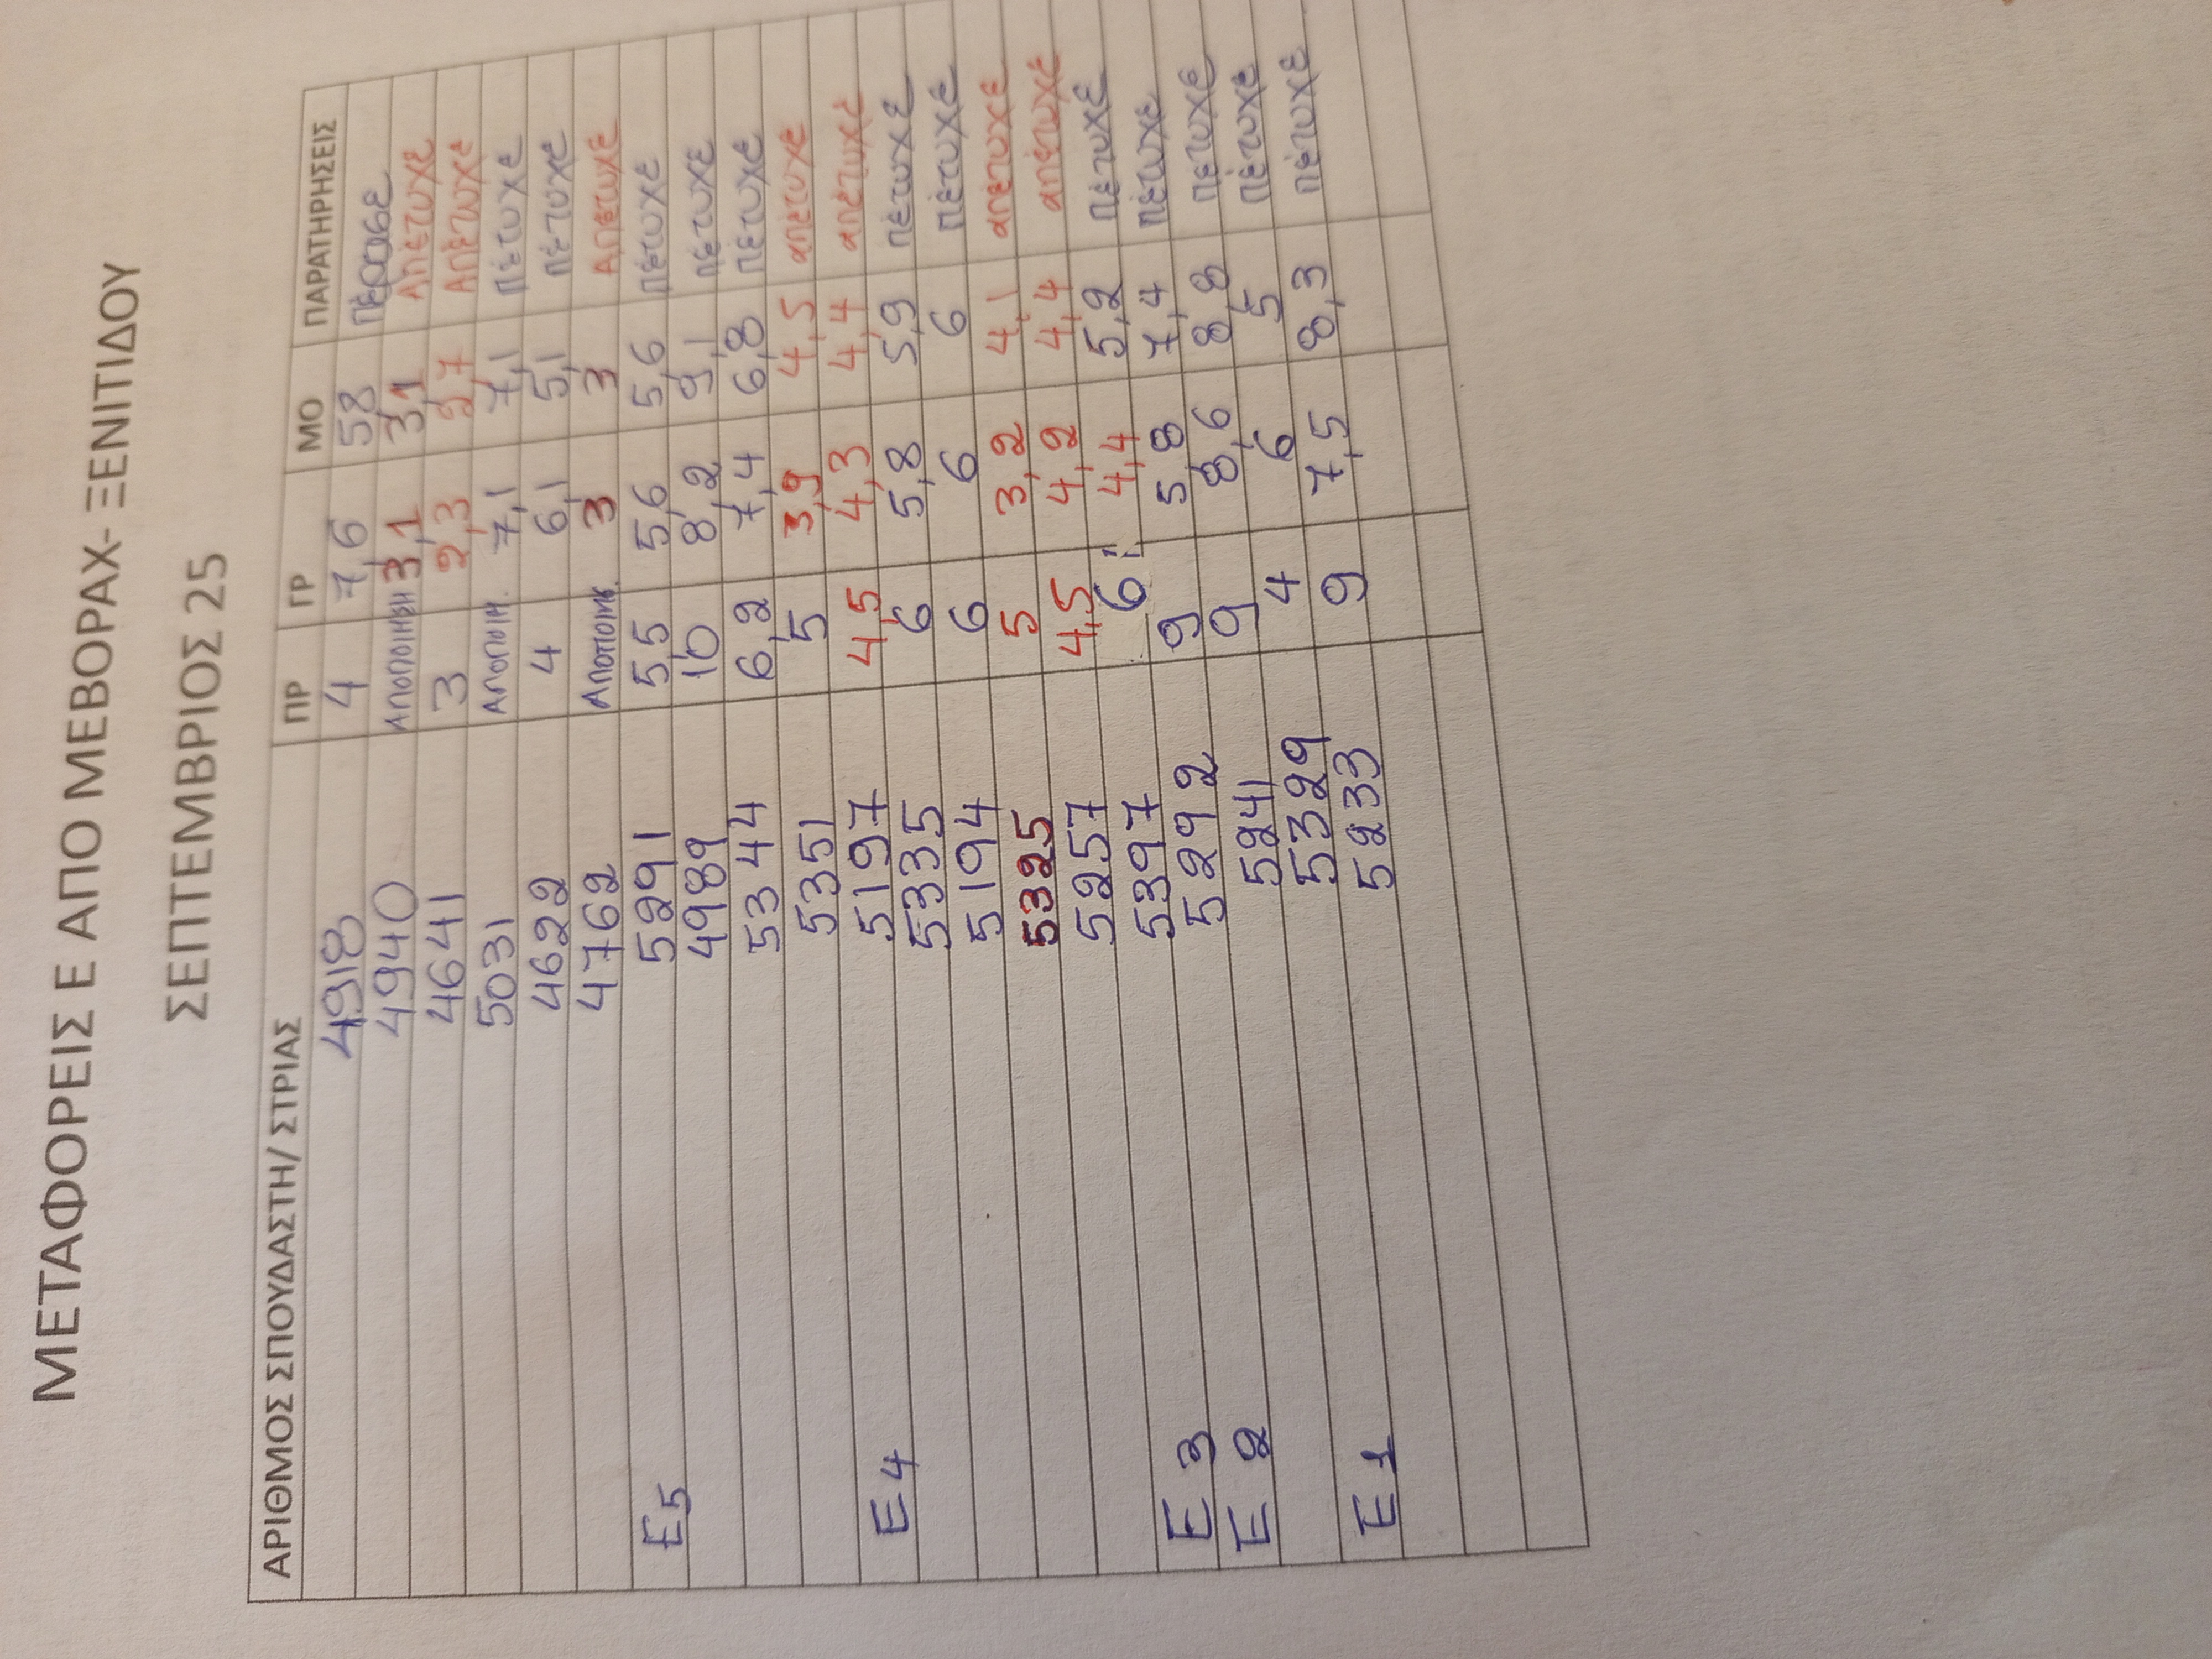 ΜΕΤΑΦΟΡΕΙΣ Ε ΑΠΟ ΜΕΒΟΡΑΧ- ΞΕΝΙΤΙΔΟΥ
ΣΕΠΤΕΜΒΡΙΟΣ 25
ΑΡΙΘΜΟΣ ΣΠΟΥΔΑΣΤΗ/ ΣΤΡΙΑΣ ΠΡ ΓΡ ΜΟ ΠΑΡΑΤΗΡΗΣΕΙΣ
4918 4 7,6 5,8 πέρασε
4940 Αποποίηση 3,1 3,1 Απέτυχε
4641 3 2,3 2,7 Απέτυχε
5031 Αποποιη. 7,1 7,1 πέτυχε
4622 4 6,1 5,1 πέτυχε
4762 Αποποιησ. 3 3 Απέτυχε
Ε5 5291 5,5 5,6 5,6 πέτυχε
4989 10 8,2 9,1 πέτυχε
5344 6,2 7,4 6,8 πέτυχε
5351 5 3,9 4,5 απέτυχε
Ε4 5197 4,5 4,3 4,4 απέτυχε
5335 6 5,8 5,9 πέτυχε
5194 6 6 6 πέτυχε
5325 5 3,2 4,1 απέτυχε
5257 4,5 4,2 4,4 απέτυχε
5397 6 4,4 5,2 πέτυχε
Ε3 5292 9 5,8 7,4 πέτυχε
Ε2 5241 9 8,6 8,8 πέτυχε
5329 4 6 5 πέτυχε
Ε1 5233 9 7,5 8,3 πέτυχε